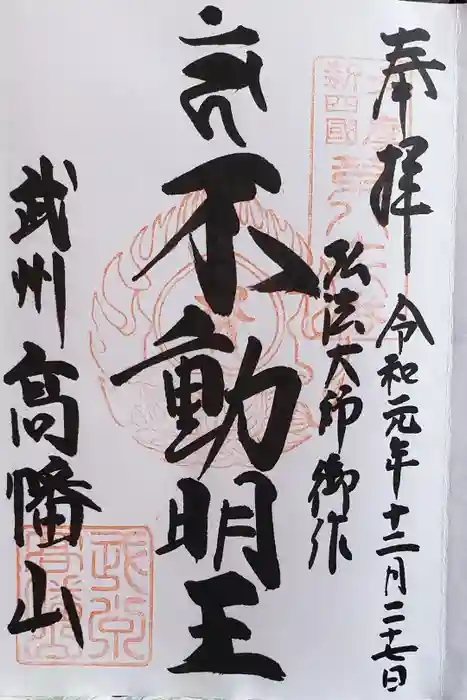 奉拝
令和元年十二月二十七日
弘法大師御作
不動明王
武州
高幡山